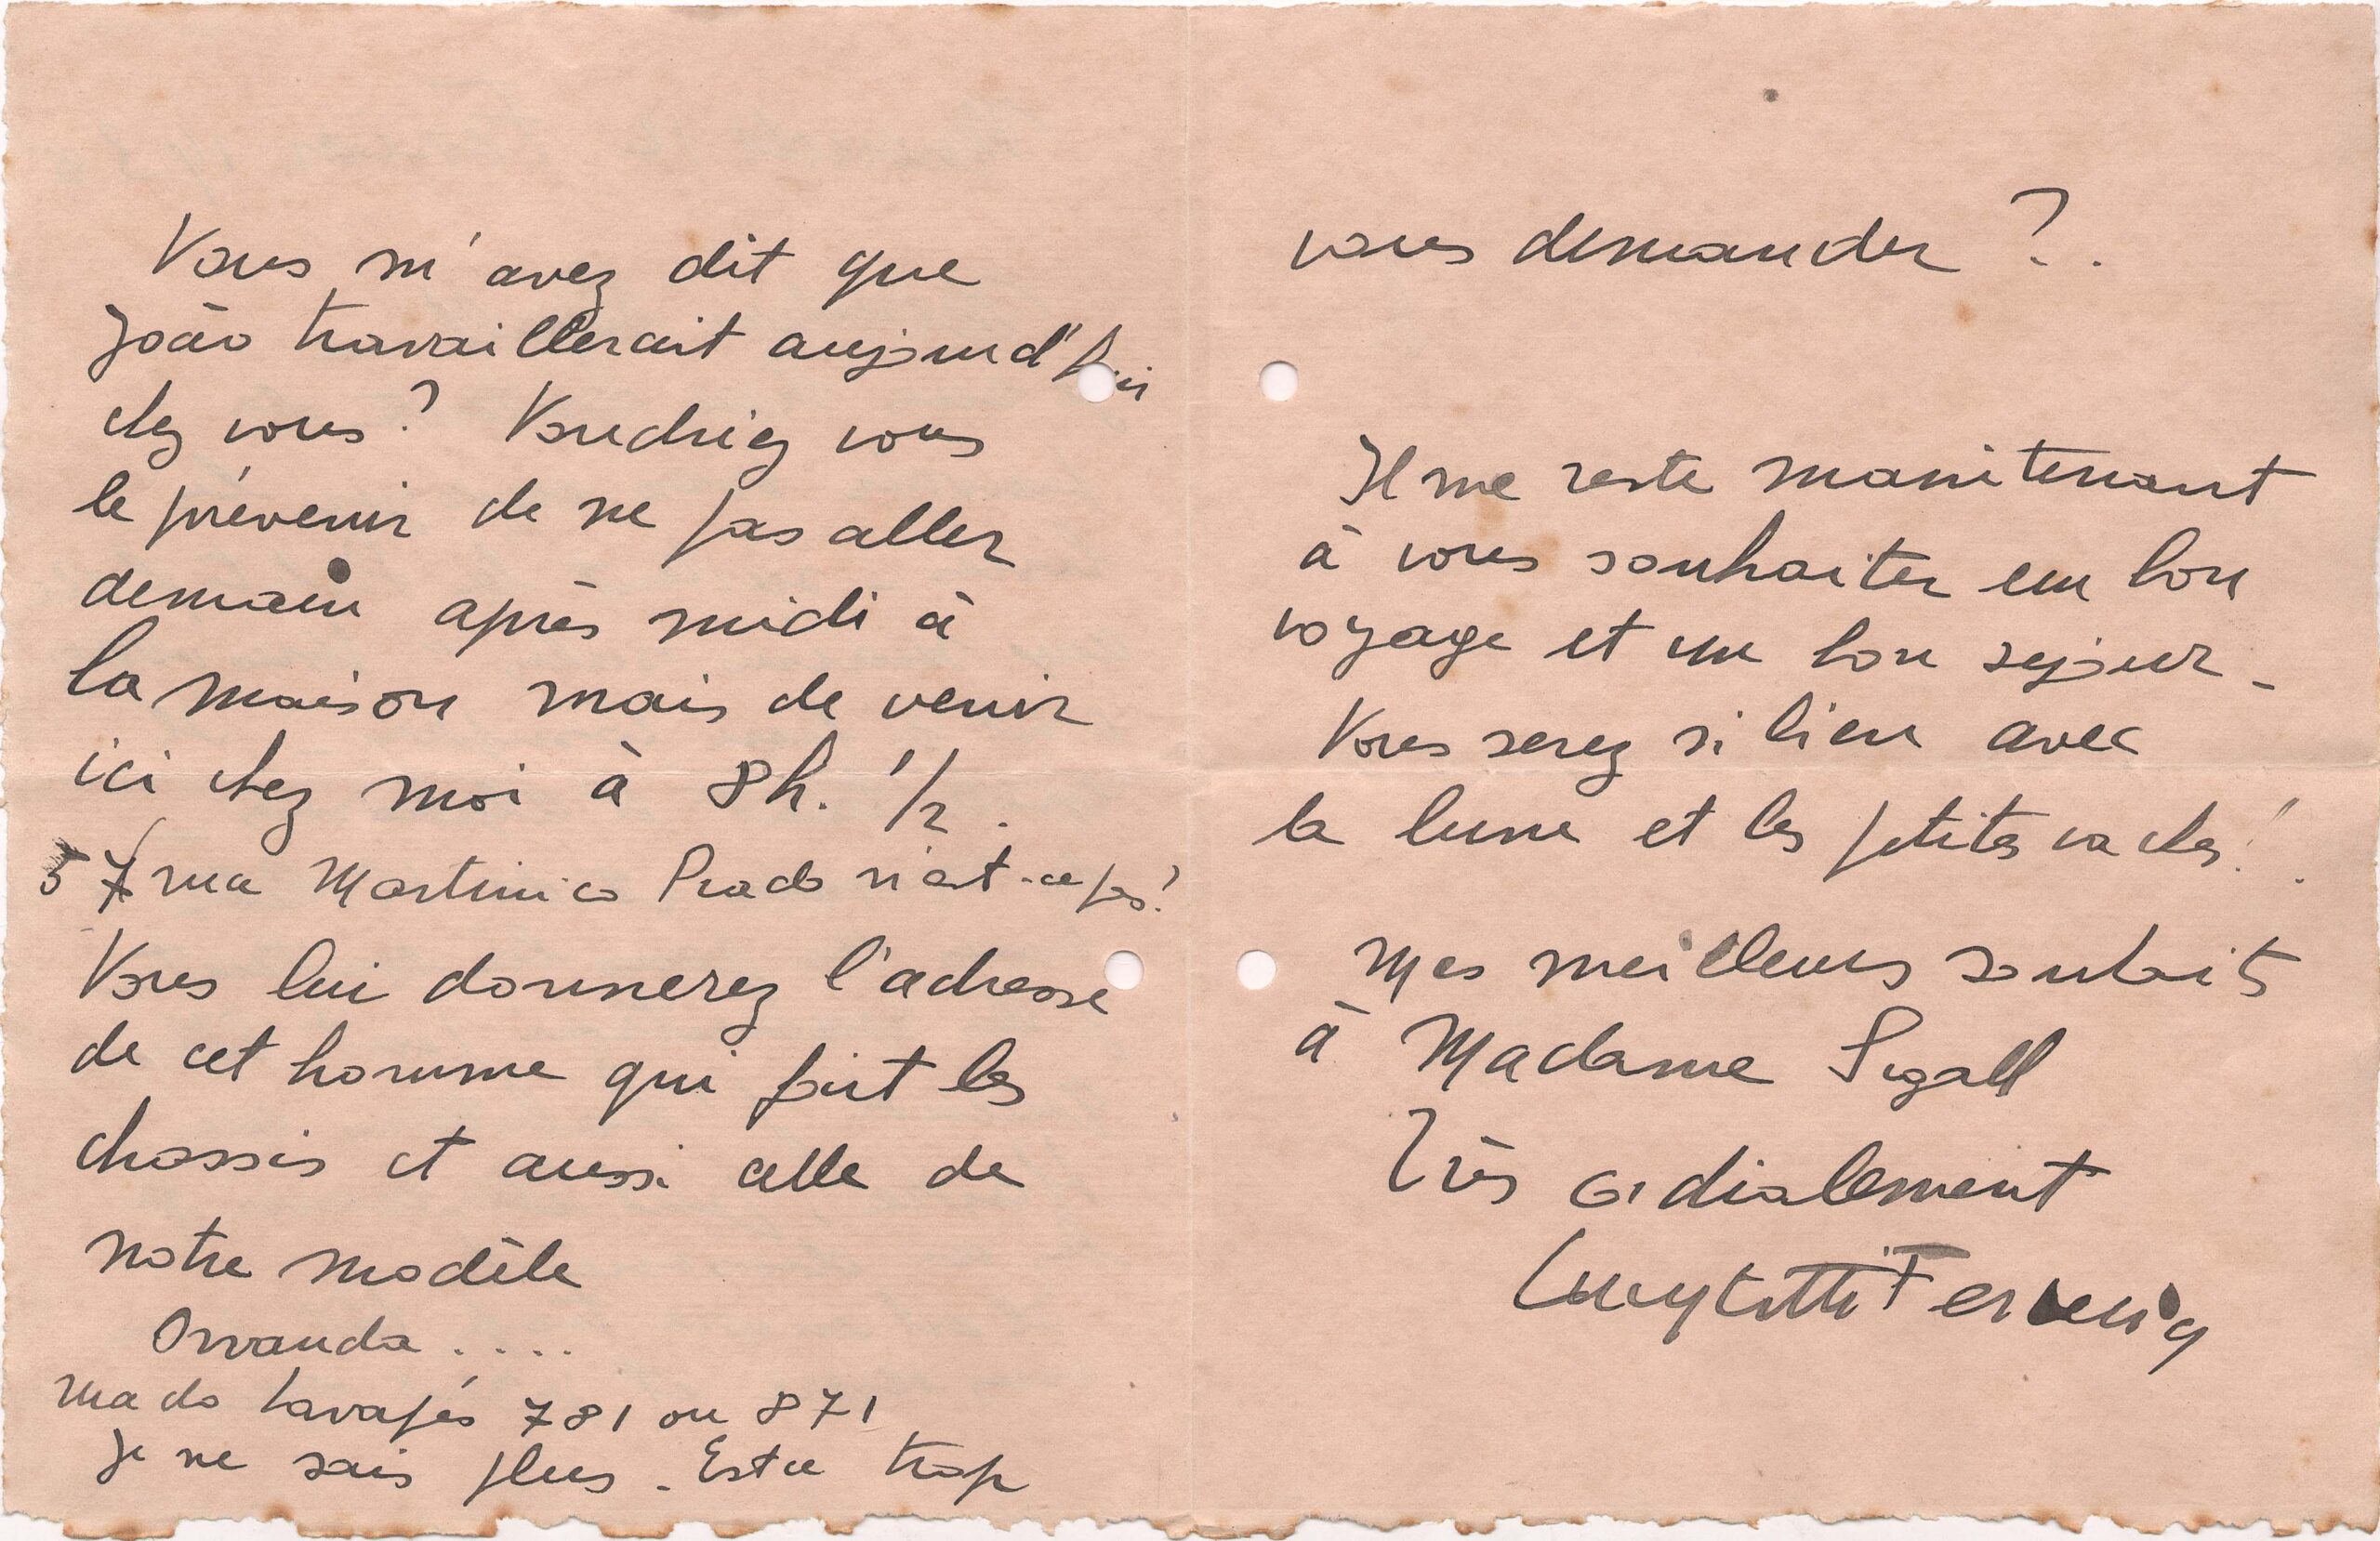 Vous m'avez dit que
João travaillerait aujourd'hui
chez vous? Voudriez vous
le prévenir de ne pas aller
demain après midi à
la maison mais de venir
ici chez moi à 8h. 1/2.
57 rua Martinico Prado n'est-ce pas?
Vous lui donnerez l'adresse
de cet homme qui fait les
chassis et aussi celle de
notre modèle
....
rua do Lavapés 781 ou 871
je ne sais plus. Est ce trop
vous demander?.
Il me reste maintenant
à vous souhaiter un bon
voyage et un bon sejour_
Vous serez si bien avec
la lune et les petites vaches!.
Mes meilleurs souhaits
à Madame Segall
Très cordialement
Lucy Citti Ferreira